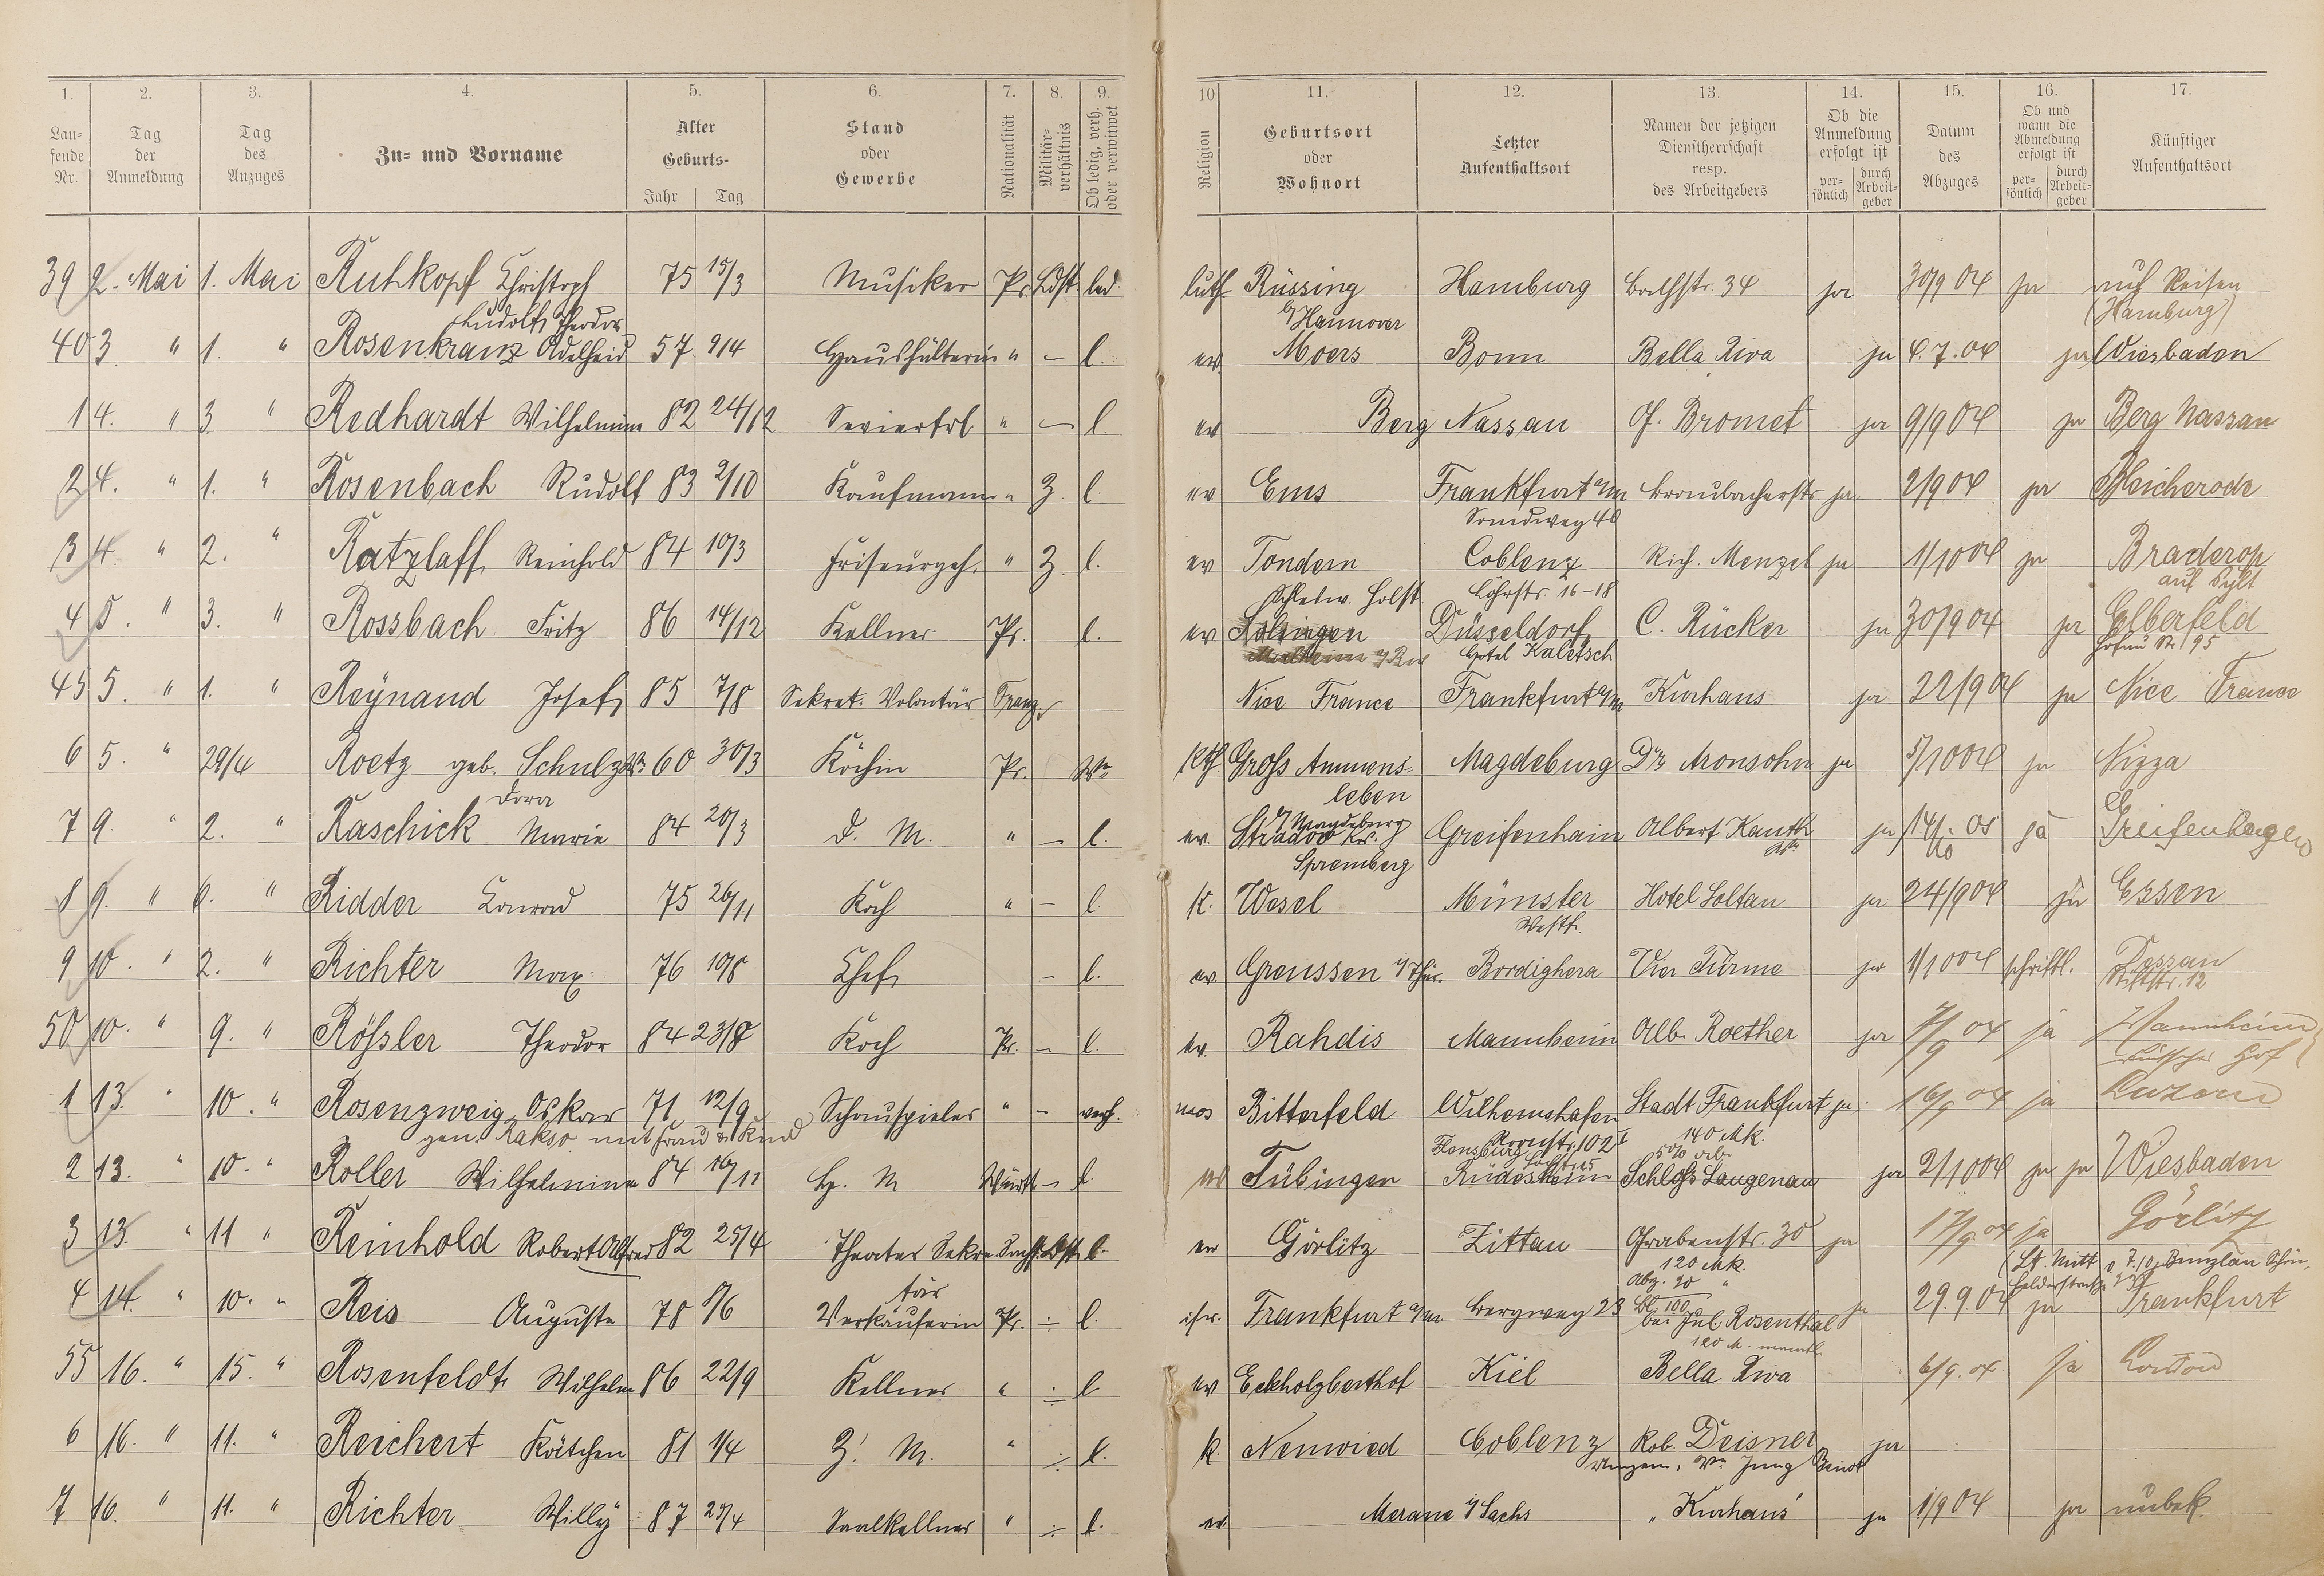 1. 2. 3. 4. 5. 6. 7. 8. 9. 10 11. 12. 13. 14. 15. 16. 17.
Lau-fende Nr. Tag der Anmeldung Tag des Anzuges Zu- und Vorname Alter Geburts- Jahr Tag Stand oder Gewerbe Nationalität Militär-verhältnis Ob ledig, verh. oder verwitwet Religion Geburtsort oder Wohnort Letzter Aufenthaltsort Namen der jetzigen Dienstherrschaft resp. des Arbeitgebers Ob die Anmeldung erfolgt ist per-sönlich durch Arbeit-geber Datum des Abzuges Ob und wann die Abmeldung erfolgt ist per-sönlich durch Arbeit-geber Künftiger Aufenthaltsort
39 2. Mai 1. Mai Ruhkopf Christoph 75 15/3 Musiker Pr. Ldst. led. luth Rüssing Hamburg 34 ja 30/9 04 ja auf Reisen
Rudolf Theodor Hannover (Hamburg)
40 3 " 1. " Rosenkranz Adelheid 57 9/4 Haushälterin " – l. ev. Moers Bonn Bella Riva ja 6.7.04 ja Wiesbaden
1 4. " 3. " Redhardt Wilhelmine 82 24/12 Servierfrl. " – l. ev Berg Nassau Bromet ja 9/9 04 ja Berg Nassau
2 4. " 1. " Rosenbach Rudolf 83 2/10 Kaufmann " 3. l. ev Ems Frankfurt a/m ja 2/9 04 ja Bleicherode
3 4. " 2. " Ratzlaff Reinhold 84 10/3 Friseurgeh. " 3. l. ev Tondern Coblenz Rich. Menzel ja 1/10 04 ja Braderop
Schlesw. Holst. Löhrstr. 16-18 auf Sylt
4 5. " 3. " Rossbach Fritz 86 14/12 Kellner Pr. l. ev. Solingen Düsseldorf C. Rücker ja 30/9 04 ja Elberfeld
Hotel Kaletsch 95
45 5. " 1. " Reynand Josef 85 7/8 Sekret. Volontär Franz. Nice France Frankfurt a/m Kurhaus ja 22/9 04 ja Nice France
6 5. " 29/4 Roetz geb. Schulz 60 30/3 Köchin Pr. Ww Kth. Groß Ammens- Magdeburg Dr. Aronsohn ja 5/10 04 ja Nizza
Dora leben
Magdeburg
7 9. " 2. " Raschick Marie 84 20/3 d. M. " – l. ev. Stradow Krs. Greifenhain Albert Kanth ja 14/10 05 ja Greifenhagen
Spremberg
8 9. " 6. " Ridder Conrad 75 26/11 Koch " – l. k. Wesel Münster Hotel Soltau ja 24/9 04 ja Essen
Westf.
9 10. " 2. " Richter Max 76 10/8 Chef – l. ev. Greussen i/Thür. Bordighera Vier Türme ja 1/10 04 schriftl. Dessau
12
50 10. " 9. " Rößler Theodor 84 23/8 Koch Pr. – l. ev. Rahdis Mannheim Alb. Roether ja 7/9 04 ja Mannheim
Hof
1 13. " 10. " Rosenzweig Oskar 71 12/9 Schauspieler " – verh. mos Bitterfeld Wilhemshafen Stadt Frankfurt ja 16/9 04 ja Luzern
gen. Rakso mit Frau & Kind 102 140 Mk.
2 13. " 10. " Roller Wilhelmine 84 16/11 H. M Württ. – l. ev Tübingen Rüdesheim Schloß Langenau ja 2/10 04 ja ja Wiesbaden
3 13. " 11 " Reinhold Robert Alfred 82 25/4 Theater Sekre Sachs. Ldst. l. ev Görlitz Zittau Grabenstr. 30 ja 17/9 04 ja Görlitz
tär 120 Mk. 7.10. Bunzlau
4 14. " 10. " Reis Auguste 78 8/6 Verkäuferin Pr. ÷ l. isr. Frankfurt a/m. Bergweg 23 bei Jul. Rosenthal ja 29.9.04 ja Frankfurt
120 M. monatl.
55 16. " 15. " Rosenfeldt Wilhelm 86 22/9 Kellner " ÷ l ev Eckholzberthof Kiel Bella Riva 6/9. 04 ja London
6 16. " 11. " Reichert Kätchen 81 1/4 Z. M. " ÷ l. k. Neuwied Coblenz Rob. Deisner ja
Jung
7 16. " 11. " Richter Willy 87 25/4 Saalkellner " ÷ l. ev Merane i/Sachs „Kurhaus" ja 1/9 04 ja unbek.